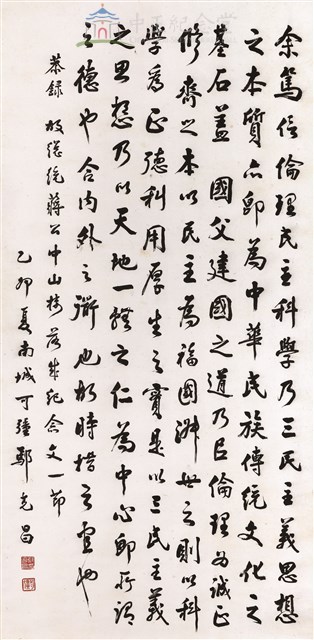 余篤信倫理民主科學乃三民主義思想
之本質亦即為中華民族傳統文化之
基石蓋 國父建國之道乃以倫理為誠正
修齊之本以民主為福國淑世之則以科
學為正德利用厚生之實是以三民主義
之思想乃以天地一體之仁為中心即所謂
之德也合內外之道也故時措之宜也
恭錄 故總統蔣公中山樓落成紀念文一節
乙卯夏南城可鍾鄢克昌
中正紀念堂